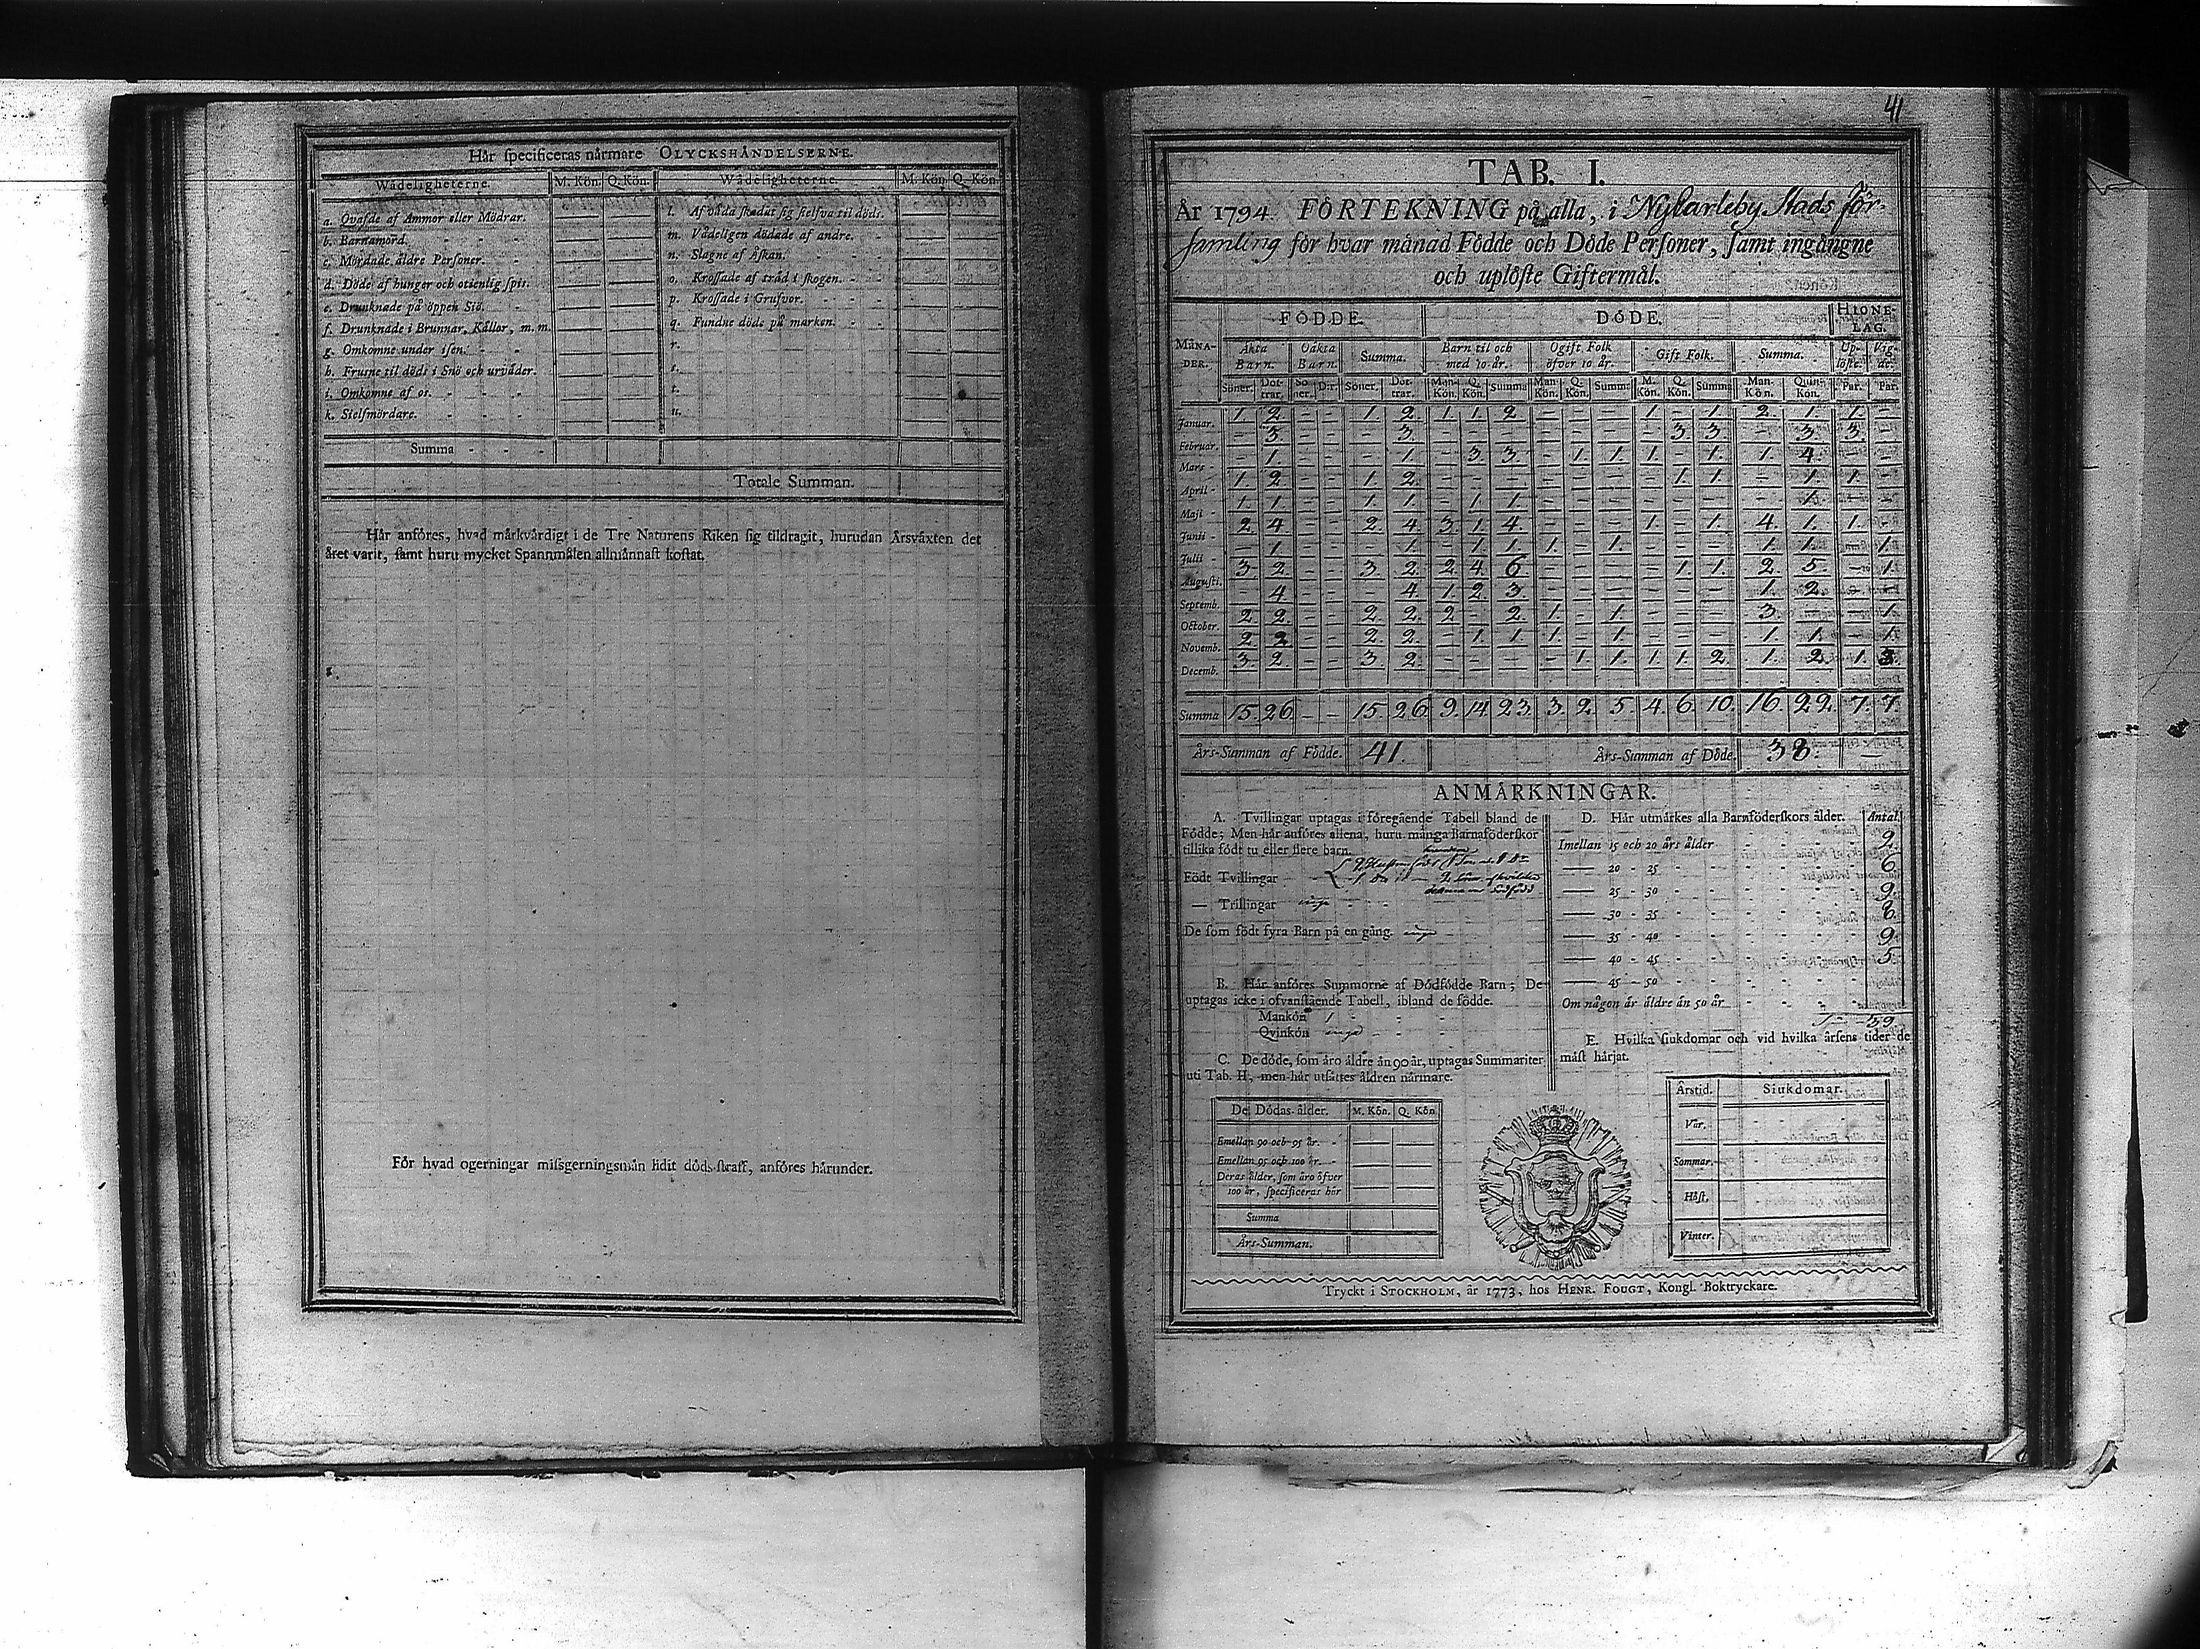 Hår ſpecificeras nårmare OLYCKSHÅNDELSERNE.
Wådeligheterne. M. Kön. Q. Kön. Wådeligheterne. M. Kön. Q. Kön.
a. Qvafde af Ammor eller Mödrar. — —
b. Barnamord. — —
c. Mördade åldre Perſoner. — —
d. Döde af hunger och otienlig ſpis. — —
e. Drunknade på öppen Siö. — —
f. Drunknade i Brunnar, Kållor, m. m. — —
g. Omkomne under iſen. — —
h. Fruſne til döds i Snö och urvåder. — —
i. Omkomne af os. — —
k. Sielfmördare. — —
l. Af våda ſkadat ſig ſielfva til döds. — —
m. Vådeligen dödade af andre. — —
n. Slagne af Åſkan. — —
o. Kroſſade af tråd i ſkogen. — —
p. Kroſſade i Grufvor. — —
q. Fundne döde på marken. — —
r. — —
s. — —
t. — —
u. — —
Summa - - -
Totale Summan.
Hår anföres, hvad mårkvårdigt i de Tre Naturens Riken ſig tildragit, hurudan Årsvåxten det
året varit, ſamt huru mycket Spannmålen allmånnaſt koſtat.
För hvad ogerningar miſsgerningsmån lidit döds-ſtraff, anföres hårunder.
41
TAB. I.
År 1794 FÖRTEKNING på alla, i Nycarleby Stads För-
samling för hvar månad Födde och Döde Perſoner, ſamt ingångne
och uplöſte Giftermål.
FÖDDE. DÖDE. HIONE-
LAG.
MÅNA-
DER. Åkta
Barn. Oåkta
Barn. Summa. Barn til och
med 10 år. Ogift Folk
öfver 10 år. Gift Folk. Summa. Up-
löſte. Vig-
de.
Söner. Döt-
trar. Sö-
ner. D:r Söner. Döt-
trar. Man-
Kön. Q.
Kön. Summa Man-
Kön. Q.
Kön. Summa M.
Kön. Q.
Kön. Summa Man-
Kön. Quin-
Kön. Par. Par.
Januar. 1. 2. — — 1. 2. 1. 1. 2. — — — 1. — 1. 2. 1. 1. —
Februar. — 3. — — — 3. — — — — — — — 3. 3. — 3. 3. —
Mars - — 1. — — — 1. — 3. 3. — 1. 1. 1. — 1. 1. 4. — —
April - 1. 2. — — 1. 2. — — — — — — — 1. 1. — 1. 1. —
Maji - 1. 1. — — 1. 1. — 1. 1. — — — — — — — 1. — —
Junii - 2. 4. — — 2. 4. 3. 1. 4. — — — 1. — 1. 4. 1. 1. —
Julii - — 1. — — — 1. — 1. 1. 1. — 1. — — — 1. 1. — 1.
Auguſti. 3. 2. — — 3. 2. 2. 4. 6. — — — — 1. 1. 2. 5. — 1.
Septemb. — 4. — — — 4. 1. 2. 3. — — — — — — 1. 2. — —
October. 2. 2. — — 2. 2. 2. — 2. 1. — 1. — — — 3. — — 1.
Novemb. 2. 2. — — 2. 2. — 1. 1. 1. — 1. — — — 1. 1. — 1.
Decemb. 3. 2. — — 3. 2. — — — — 1. 1. 1. 1. 2. 1. 2. 1. 3.
Summa 15. 26. — — 15. 26. 9. 14. 23. 3. 2. 5. 4. 6. 10. 16. 22. 7. 7.
Års-Summan af Födde. 41. Års-Summan af Döde. 38. —
ANMÅRKNINGAR.
A. Tvillingar uptagas i föregående Tabell bland de
Födde; Men hår anföres allena, huru många Barnaföderſkor
tillika födt tu eller flere barn.
Födt Tvillingar
— Trillingar inga
De ſom födt fyra Barn på en gång. inga
B. Hår anföres Summorne af Dödfödde Barn; De
uptagas icke i ofvanſtående Tabell, ibland de födde.
Mankön 1
Qvinkön inga
C. De döde, ſom åro åldre ån 90 år, uptagas Summariter
uti Tab. II, men hår utſåttes åldren nårmare.
De Dödas ålder. M. Kön. Q. Kön
Emellan 90 och 95 år. - — —
Emellan 95 och 100 år. - — —
Deras ålder, ſom åro öfver
100 år, ſpecificeras hår — —
Summa
Års-Summan.
D. Hår utmårkes alla Barnföderſkors ålder. Antal
Imellan 15 och 20 års ålder 2.
— 20 - 25 6
— 25 - 30 9.
— 30 - 35 8.
— 35 - 40 9.
— 40 - 45 5.
— 45 - 50
Om någon år åldre ån 50 år
39
E. Hvilka ſiukdomar och vid hvilka årſens tider de
måſt hårjat.
Årstid. Siukdomar.
Vår.
Sommar.
Höſt.
Vinter.
Tryckt i STOCKHOLM, år 1773, hos HENR. FOUGT, Kongl. Boktryckare.